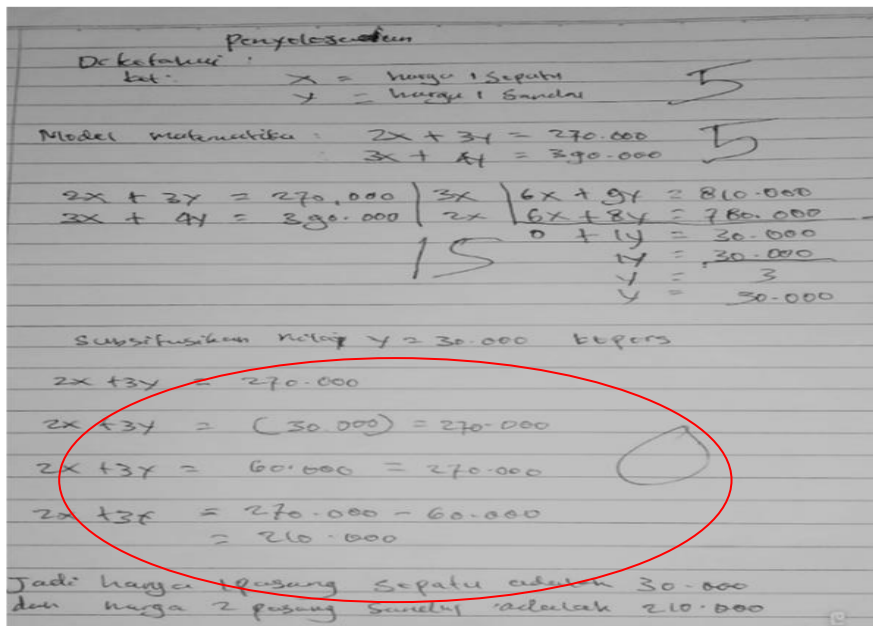 Penyelesaian
Diketahui :
x = harga 1 sepatu
y = harga 1 Sandal
5
Model matematika : 2x + 3y = 270.000
: 3x + 4y = 390.000
5
2x + 3y = 270.000 | 3x | 6x + 9y = 810.000
3x + 4y = 390.000 | 2x | 6x + 8y = 780.000 -
0 + 1y = 30.000
1y = 30.000
y = 3
y = 30.000
15
Subsitusikan nilai y = 30.000 kepers
2x + 3y = 270.000
2x + 3y = (30.000) = 270.000
2x + 3y = 60.000 = 270.000
0
2x + 3y = 270.000 - 60.000
= 210.000
Jadi harga 1 pasang sepatu adalah 30.000
dan harga 2 pasang sandal adalah 210.000